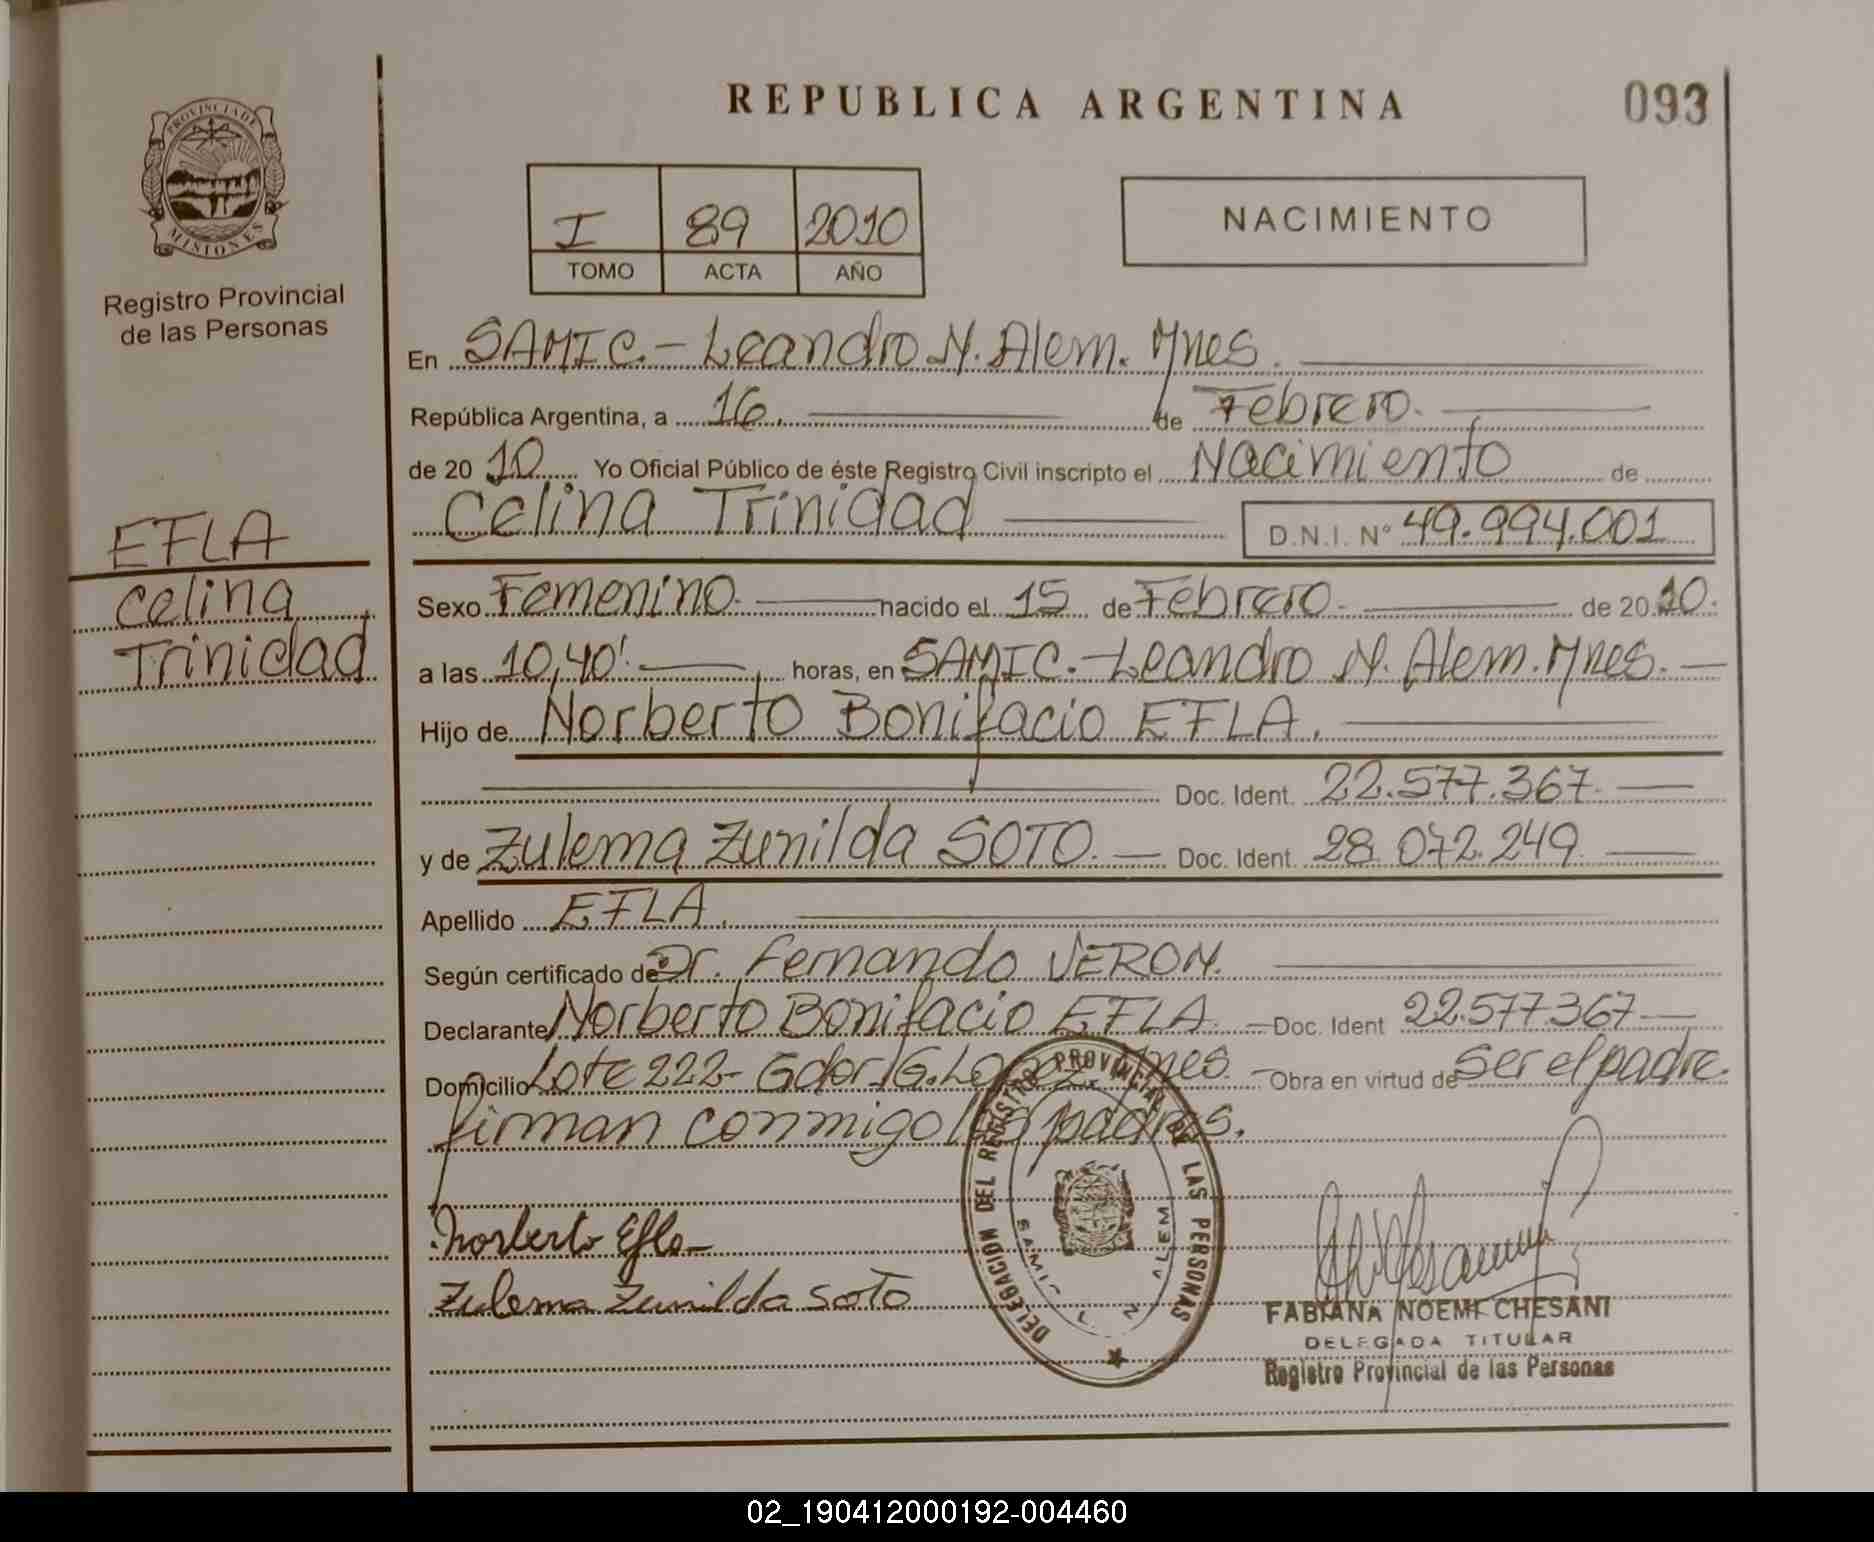 REPUBLICA ARGENTINA
093
PROVINCIA DE
MISIONES
Registro Provincial
de las Personas
I 89 2010
TOMO ACTA AÑO
NACIMIENTO
En SAMIC.- Leandro N. Alem. Mnes.
República Argentina, a 16. de Febrero.
de 2010 Yo Oficial Público de éste Registro Civil inscripto el Nacimiento de
Celina Trinidad D.N.I. N° 49.994.001
EFLA
Celina
Trinidad
Sexo Femenino. nacido el 15 de Febrero. de 2010.
a las 10,40'. horas, en SAMIC.- Leandro N. Alem. Mnes.
Hijo de Norberto Bonifacio EFLA.
Doc. Ident. 22.577.367.
y de Zulema Zunilda SOTO. Doc. Ident. 28.072.249.
Apellido EFLA.
Según certificado de Dr. Fernando VERON.
Declarante Norberto Bonifacio EFLA. Doc. Ident 22.577.367
Domicilio Lote 222- Gdor. G. Lopez Mnes. Obra en virtud de ser el padre.
firman conmigo los padres.
DELEGACION DEL REGISTRO PROVINCIAL DE LAS PERSONAS
SAMIC L. N. ALEM
Norberto Efla
Zulema Zunilda Soto
FABIANA NOEMI CHESANI
DELEGADA TITULAR
Registro Provincial de las Personas
02_190412000192-004460